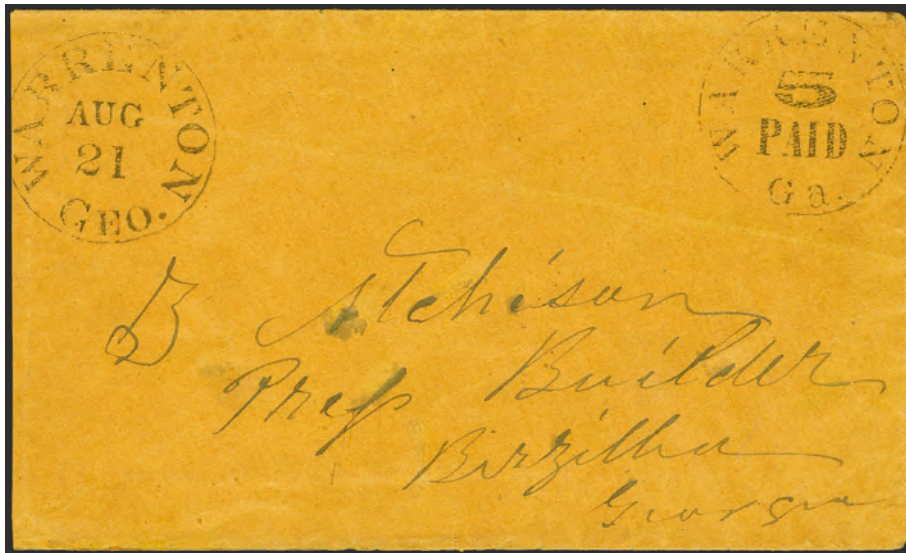 WARRENTON
AUG
21
GEO.
WARRENTON
5
PAID
Ga.
B Atchison
Builder
Birzilha
Georgia